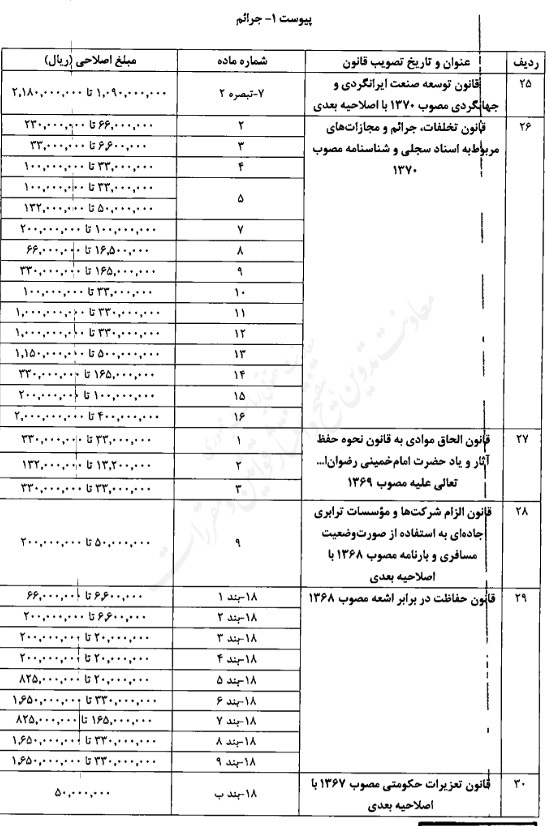 پیوست ۱- جرائم
ردیف | عنوان و تاریخ تصویب قانون | شماره ماده | مبلغ اصلاحی (ریال)
۲۵ | قانون توسعه صنعت ایرانگردی و جهانگردی مصوب ۱۳۷۰ با اصلاحیه بعدی | ۷-تبصره ۲ | ۱,۰۹۰,۰۰۰,۰۰۰ تا ۲,۱۸۰,۰۰۰,۰۰۰
۲۶ | قانون تخلفات، جرائم و مجازات‌های مربوط‌به اسناد سجلی و شناسنامه مصوب ۱۳۷۰ | ۲ | ۶۶,۰۰۰,۰۰۰ تا ۲۳۰,۰۰۰,۰۰۰
۳ | ۶,۶۰۰,۰۰۰ تا ۳۳,۰۰۰,۰۰۰
۴ | ۳۳,۰۰۰,۰۰۰ تا ۱۰۰,۰۰۰,۰۰۰
۵ | ۳۳,۰۰۰,۰۰۰ تا ۱۰۰,۰۰۰,۰۰۰
۵۰,۰۰۰,۰۰۰ تا ۱۳۲,۰۰۰,۰۰۰
۷ | ۱۰۰,۰۰۰,۰۰۰ تا ۲۰۰,۰۰۰,۰۰۰
۸ | ۱۶,۵۰۰,۰۰۰ تا ۶۶,۰۰۰,۰۰۰
۹ | ۱۶۵,۰۰۰,۰۰۰ تا ۳۳۰,۰۰۰,۰۰۰
۱۰ | ۳۳,۰۰۰,۰۰۰ تا ۱۰۰,۰۰۰,۰۰۰
۱۱ | ۳۳۰,۰۰۰,۰۰۰ تا ۱,۰۰۰,۰۰۰,۰۰۰
۱۲ | ۳۳۰,۰۰۰,۰۰۰ تا ۱,۰۰۰,۰۰۰,۰۰۰
۱۳ | ۵۰۰,۰۰۰,۰۰۰ تا ۱,۱۵۰,۰۰۰,۰۰۰
۱۴ | ۱۶۵,۰۰۰,۰۰۰ تا ۳۳۰,۰۰۰,۰۰۰
۱۵ | ۱۰۰,۰۰۰,۰۰۰ تا ۲۰۰,۰۰۰,۰۰۰
۱۶ | ۴۰۰,۰۰۰,۰۰۰ تا ۲,۰۰۰,۰۰۰,۰۰۰
۲۷ | قانون الحاق موادی به قانون نحوه حفظ آثار و یاد حضرت امام‌خمینی رضوان‌ا... تعالی علیه مصوب ۱۳۶۹ | ۱ | ۳۳,۰۰۰,۰۰۰ تا ۳۳۰,۰۰۰,۰۰۰
۲ | ۱۳,۲۰۰,۰۰۰ تا ۱۳۲,۰۰۰,۰۰۰
۳ | ۳۳,۰۰۰,۰۰۰ تا ۳۳۰,۰۰۰,۰۰۰
۲۸ | قانون الزام شرکت‌ها و مؤسسات ترابری جاده‌ای به استفاده از صورت‌وضعیت مسافری و بارنامه مصوب ۱۳۶۸ با اصلاحیه بعدی | ۹ | ۵۰,۰۰۰,۰۰۰ تا ۲۰۰,۰۰۰,۰۰۰
۲۹ | قانون حفاظت در برابر اشعه مصوب ۱۳۶۸ | ۱۸-بند ۱ | ۶,۶۰۰,۰۰۰ تا ۶۶,۰۰۰,۰۰۰
۱۸-بند ۲ | ۶,۶۰۰,۰۰۰ تا ۲۰۰,۰۰۰,۰۰۰
۱۸-بند ۳ | ۲۰,۰۰۰,۰۰۰ تا ۲۰۰,۰۰۰,۰۰۰
۱۸-بند ۴ | ۲۰,۰۰۰,۰۰۰ تا ۲۰۰,۰۰۰,۰۰۰
۱۸-بند ۵ | ۲۰,۰۰۰,۰۰۰ تا ۸۲۵,۰۰۰,۰۰۰
۱۸-بند ۶ | ۳۳۰,۰۰۰,۰۰۰ تا ۱,۶۵۰,۰۰۰,۰۰۰
۱۸-بند ۷ | ۱۶۵,۰۰۰,۰۰۰ تا ۸۲۵,۰۰۰,۰۰۰
۱۸-بند ۸ | ۳۳۰,۰۰۰,۰۰۰ تا ۱,۶۵۰,۰۰۰,۰۰۰
۱۸-بند ۹ | ۳۳۰,۰۰۰,۰۰۰ تا ۱,۶۵۰,۰۰۰,۰۰۰
۳۰ | قانون تعزیرات حکومتی مصوب ۱۳۶۷ با اصلاحیه بعدی | ۱۸-بند ب | ۵۰,۰۰۰,۰۰۰